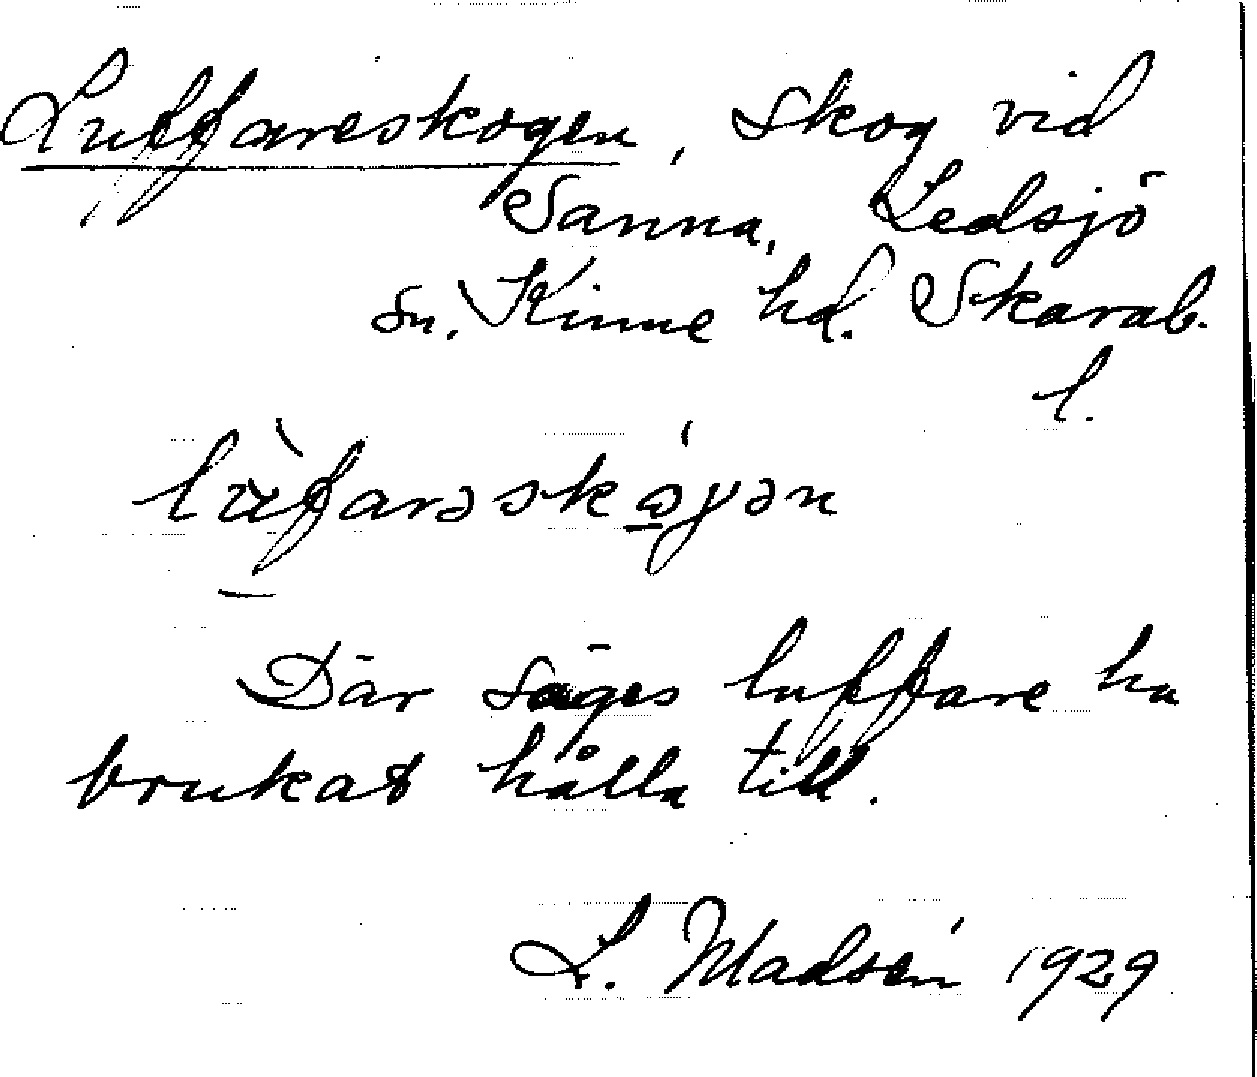 Luffareskogen, skog vid
Sanna, Ledsjö
sn. Kinne hd. Skarab.
l.
Där säges luffare ha
brukat hålla till.
L. Madsén 1929